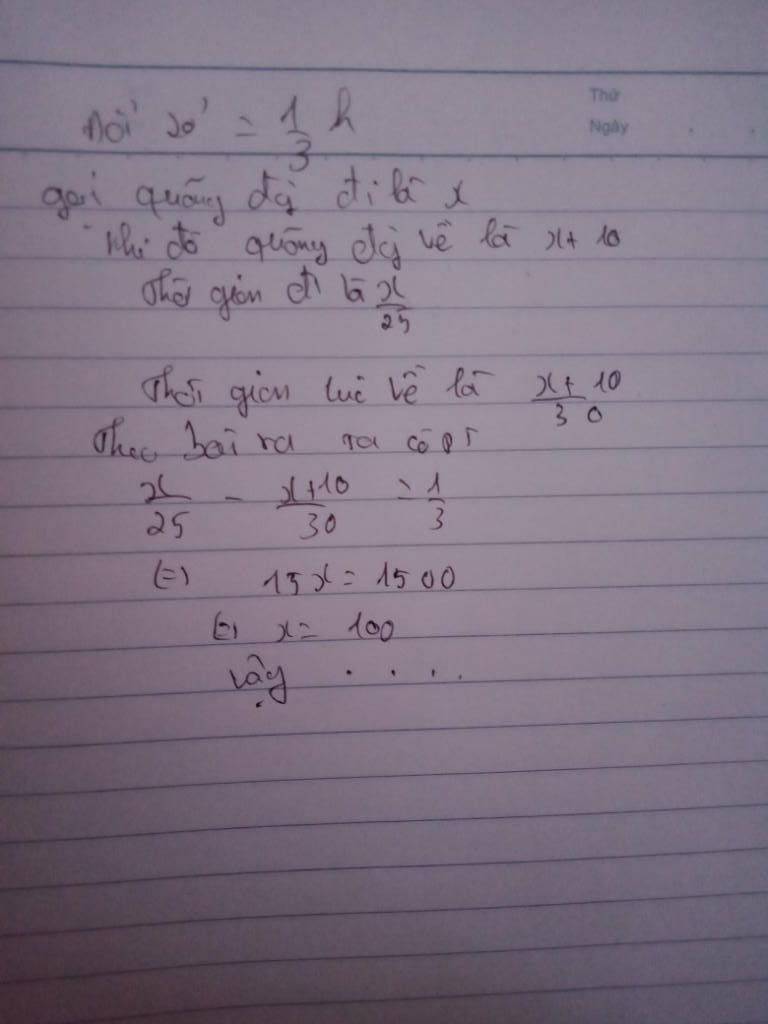 Thứ
Ngày
Đổi 20' = 1/3 h
gọi quãng đg đi là x
khi đó quãng đg về là x+ 10
Thời gian đi là x/25
Thời gian lúc về là x+ 10/30
Theo bài ra ta có pt
x/25 - x+10/30 = 1/3
(=) 15x = 1500
(=) x = 100
Vậy . . . .